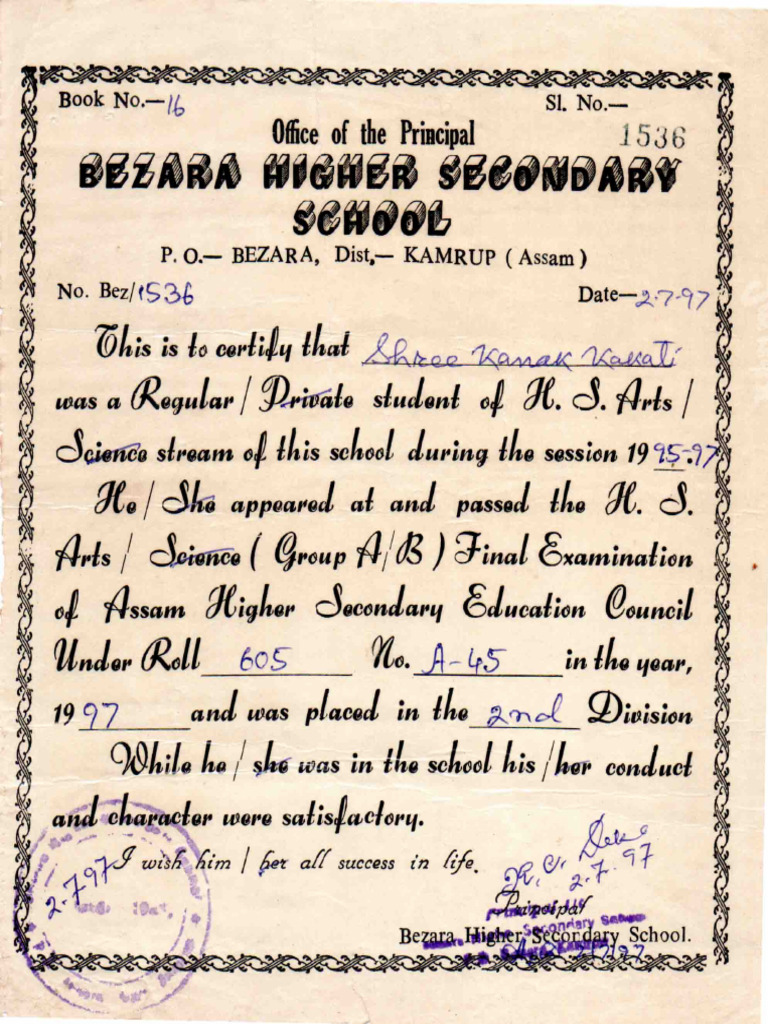 Book No.—16 Sl. No.—
Office of the Principal 1536
BEZARA HIGHER SECONDARY
SCHOOL
P. O.— BEZARA, Dist,— KAMRUP ( Assam )
No. Bez/1536 Date—2-7-97
This is to certify that Shree Kanak Kakati
was a Regular / Private student of H. S. Arts /
Science stream of this school during the session 1995-97
He / She appeared at and passed the H. S.
Arts / Science ( Group A/B ) Final Examination
of Assam Higher Secondary Education Council
Under Roll 605 No. A-45 in the year,
1997 and was placed in the 2nd Division
While he / she was in the school his /her conduct
and character were satisfactory.
I wish him / her all success in life.
Deka
2.7.97
2.7.97
Principal
Secondary School
Bezara Higher Secondary School.